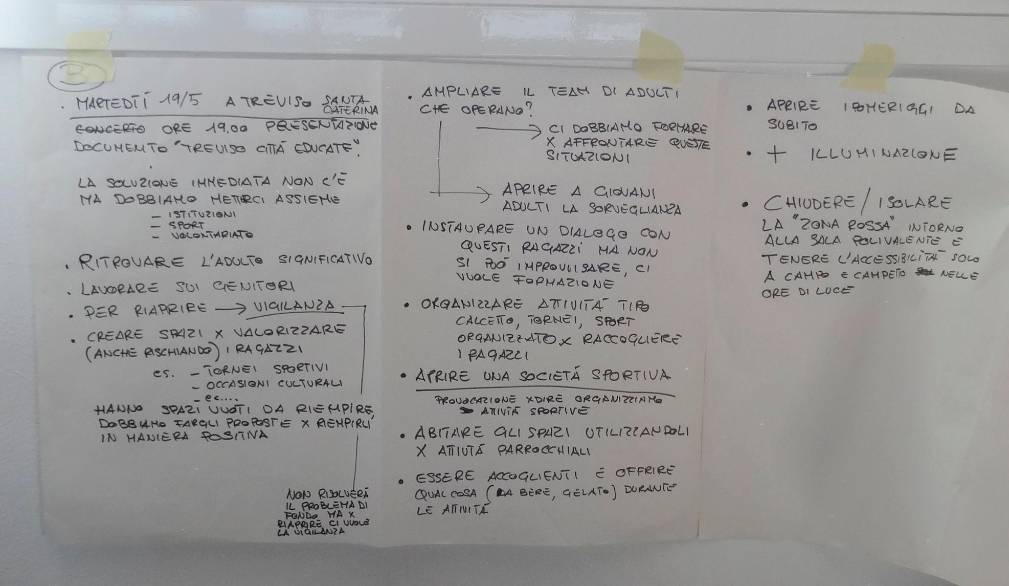 3
• MARTEDÌ 19/5 A TREVISO SANTA CATERINA
CONCERTO ORE 19.00 PRESENTAZIONE
DOCUMENTO "TREVISO CITTÀ EDUCATE".
LA SOLUZIONE IMMEDIATA NON C'È
MA DOBBIAMO METTERCI ASSIEME
- ISTITUZIONI
- SPORT
- VOLONTARIATO
• RITROVARE L'ADULTO SIGNIFICATIVO
• LAVORARE SUI GENITORI
• PER RIAPRIRE → VIGILANZA
• CREARE SPAZI X VALORIZZARE
(ANCHE RISCHIANDO) I RAGAZZI
es. - TORNEI SPORTIVI
- OCCASIONI CULTURALI
- ec....
HANNO SPAZI VUOTI DA RIEMPIRE,
DOBBIAMO FARGLI PROPOSTE X RIEMPIRLI
IN MANIERA POSITIVA
NON RISOLVERÀ
IL PROBLEMA DI
FONDO MA X
RIAPRIRE CI VUOLE
LA VIGILANZA
• AMPLIARE IL TEAM DI ADULTI
CHE OPERANO?
→ CI DOBBIAMO FORMARE
X AFFRONTARE QUESTE
SITUAZIONI
→ APRIRE A GIOVANI
ADULTI LA SORVEGLIANZA
• INSTAURARE UN DIALOGO CON
QUESTI RAGAZZI MA NON
SI PUÒ IMPROVVISARE, CI
VUOLE FORMAZIONE
• ORGANIZZARE ATTIVITÀ TIPO
CALCETTO, TORNEI, SPORT
ORGANIZZATO X RACCOGLIERE
I RAGAZZI
• APRIRE UNA SOCIETÀ SPORTIVA
PROVOCAZIONE X DIRE ORGANIZZIAMO
ATTIVITÀ SPORTIVE
• ABITARE GLI SPAZI UTILIZZANDOLI
X ATTIVITÀ PARROCCHIALI
• ESSERE ACCOGLIENTI E OFFRIRE
QUALCOSA (DA BERE, GELATO) DURANTE
LE ATTIVITÀ
• APRIRE I POMERIGGI DA
SUBITO
• + ILLUMINAZIONE
• CHIUDERE/ISOLARE
LA "ZONA ROSSA" INTORNO
ALLA SALA POLIVALENTE E
TENERE L'ACCESSIBILITÀ SOLO
A CAMPO E CAMPETO NELLE
ORE DI LUCE